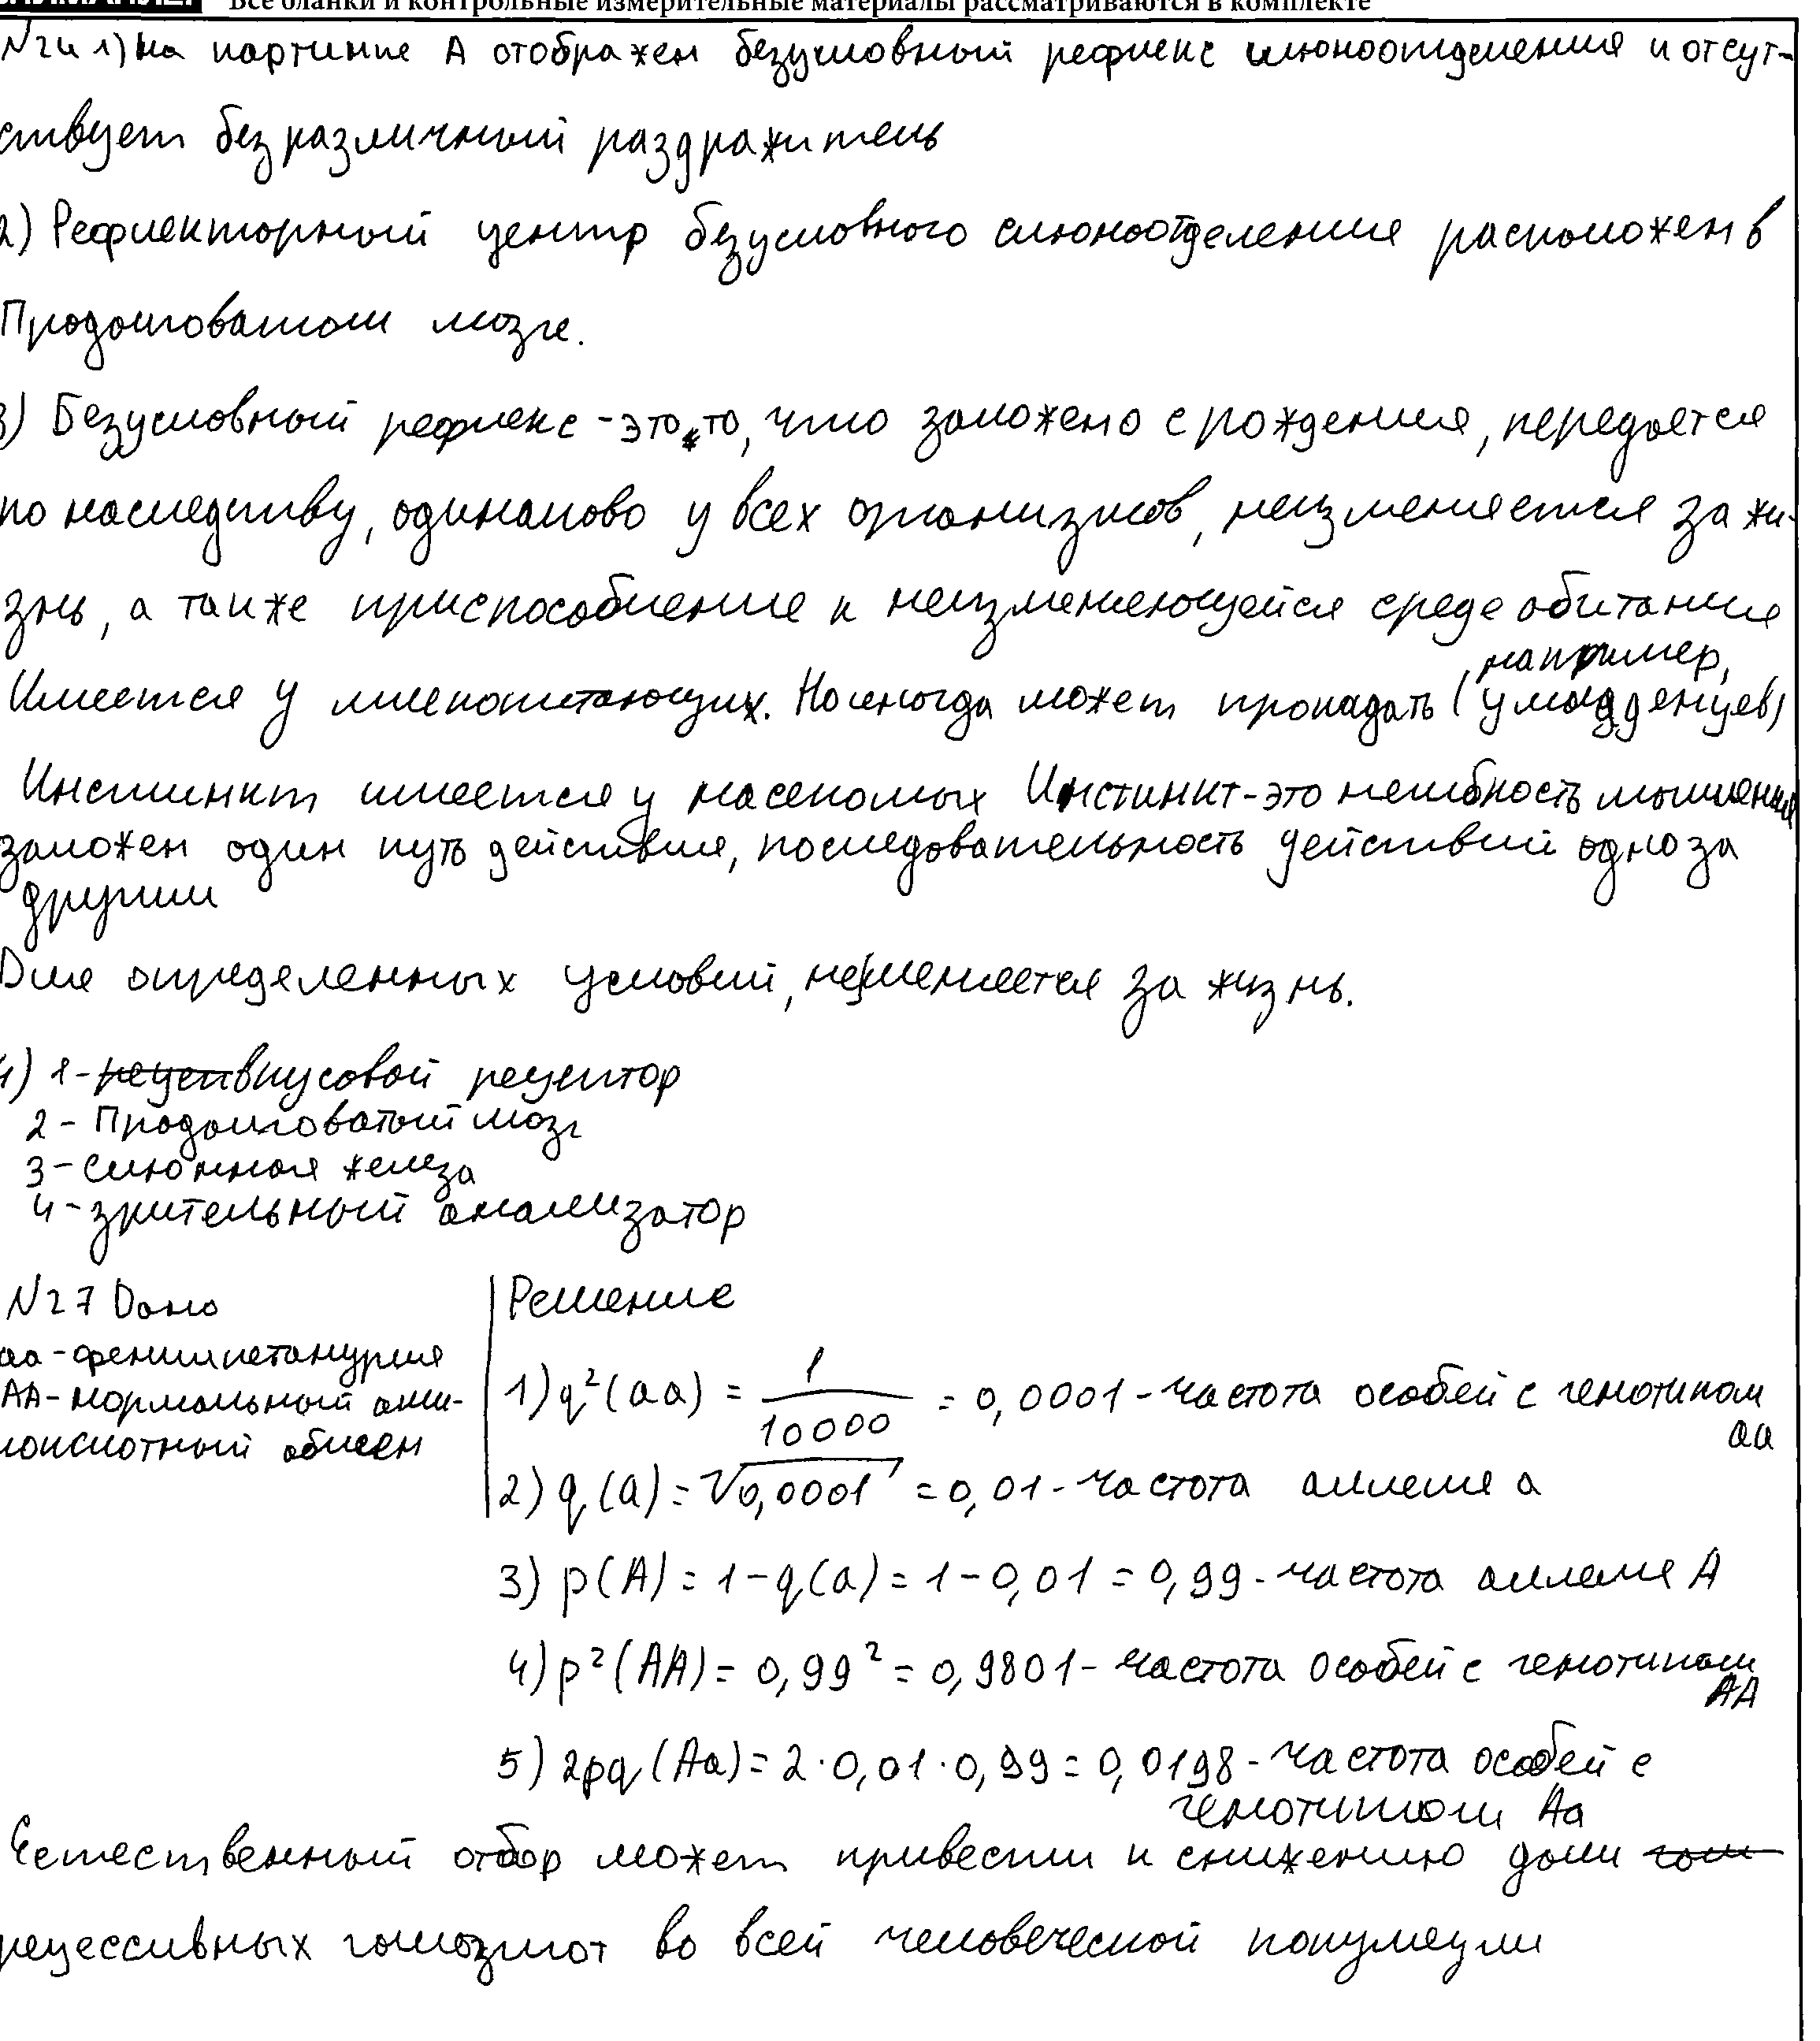 Все бланки и контрольные измерительные материалы рассматриваются в комплекте
N24 1) На картинке А отображен безусловный рефлекс слюноотделения и отсут-
ствует безразличный раздражитель
2) Рефлекторный центр безусловного слюноотделение расположен в
Продолговатом мозге.
3) Безусловный рефлекс - это то, что заложено с рождения, передается
по наследству, одинаково у всех организмов, неизменяется за жи-
знь, а также приспособление к неизменяющейся среде обитание
, например,
Имеется у млекопитающих. Но иногда может пропадать (у младденцев)
Инстинкт имеется у насекомых Инстинкт-это негибкость мышления
заложен один путь действия, последовательность действий одно за
другим
Для определенных условий, неменяется за жизнь.
4) 1- вкусовой рецептор
2 - Продолговатый мозг
3 - Слюнная железа
4 - зрительный анализатор
N27 Дано
Решение
аа - фенилкетанурия
АА - нормальный ами-
нокислотный обмен
1) q²(aa) = 1/10000 = 0,0001 - частота особей с генотипом
аа
2) q(a) = √0,0001 = 0,01 - частота аллеля а
3) p(A) = 1 - q(a) = 1 - 0,01 = 0,99 - частота аллеля А
4) p²(AA) = 0,99² = 0,9801 - частота особей с генотипом
АА
5) 2pq(Aa) = 2·0,01·0,99 = 0,0198 - частота особей с
генотипом Аа
Естественный отбор может привести к снижению доли
рецессивных гомозигот во всей человеческой популяции